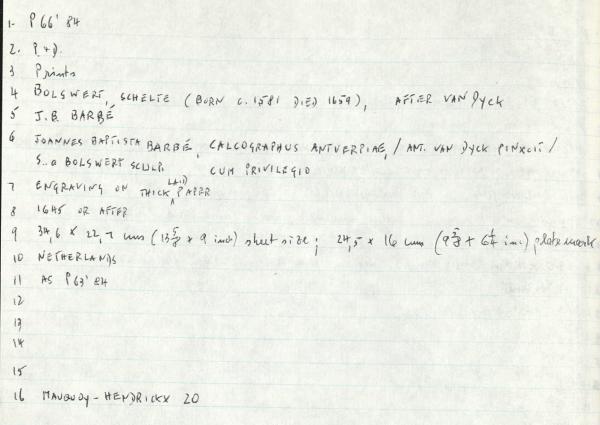 1. P 66' 84
2. P. & D.
3 Prints
4 BOLSWERT, SCHELTE (BORN c. 1581 DIED 1659), AFTER VAN DYCK
5 J.B. BARBÉ
6 JOANNES BAPTISTA BARBÉ, CALCOGRAPHUS ANTVERPIAE, / ANT. VAN DYCK PINXIT /
S. a BOLSWERT SCULP. CUM PRIVILEGIO
7 ENGRAVING ON THICK LAID PAPER
8 1645 OR AFTER
9 34,6 x 22,7 cms (13 5/8 x 9 inch) sheet size; 24,5 x 16 cms (9 5/8 x 6 1/4 inc) plate mark
10 NETHERLANDS
11 AS P 63' 84
12
13
14
15
16 MAUQUOY-HENDRICKX 20